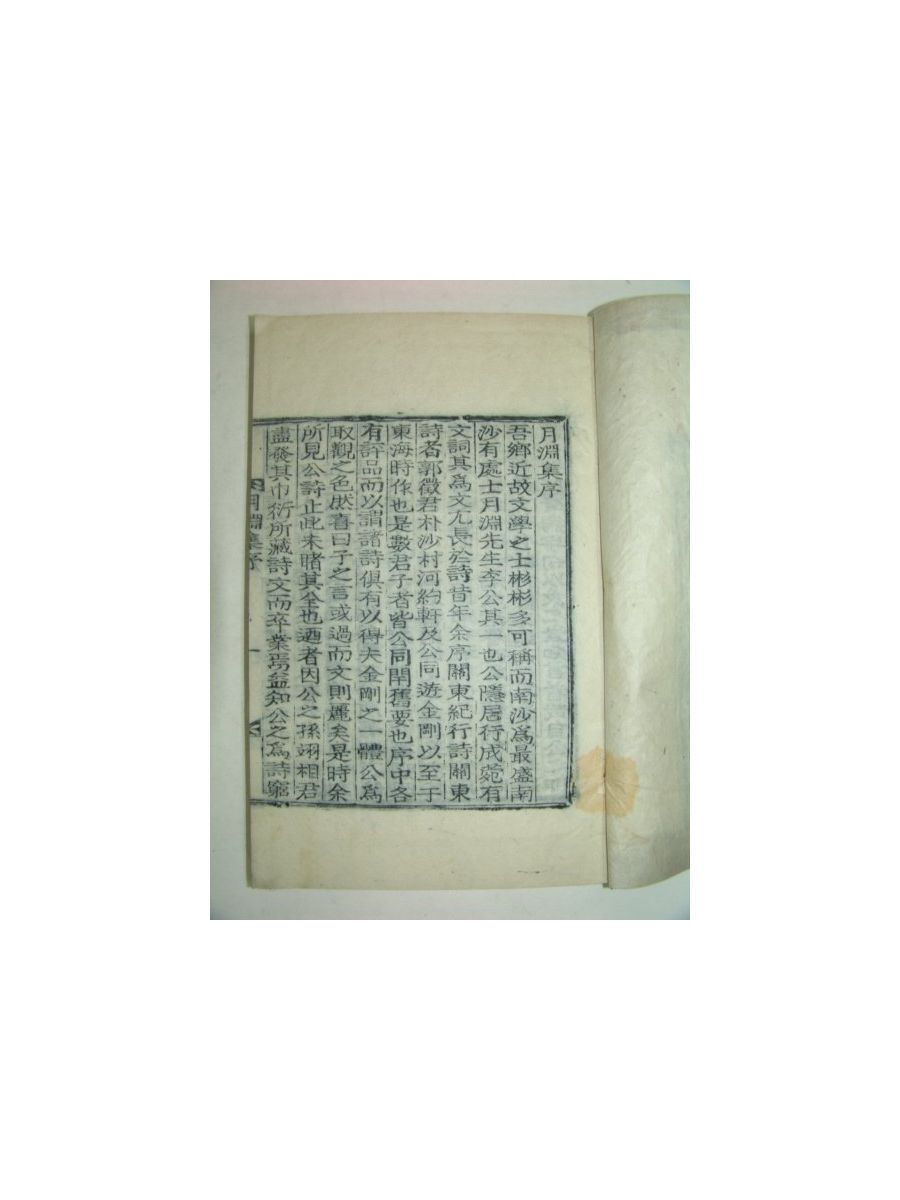 月淵集序
吾鄉近故文學之士彬彬多可稱而南沙爲最盛南
沙有處士月淵先生李公其一也公隱居行成菀有
文詞其爲文尤長於詩昔年余序關東紀行詩關東
詩者郭徵君朴沙村河約軒及公同遊金剛以至于
東海時作也是數君子者皆公同閈舊要也序中各
有評品而以謂諸詩俱有以得夫金剛之一體公爲
取觀之色然喜曰子之言或過而文則麗矣是時余
所見公詩止此未睹其全也迺者因公之孫翊相君
盡發其巾衍所藏詩文而卒業焉益知公之爲詩
月淵集序
一